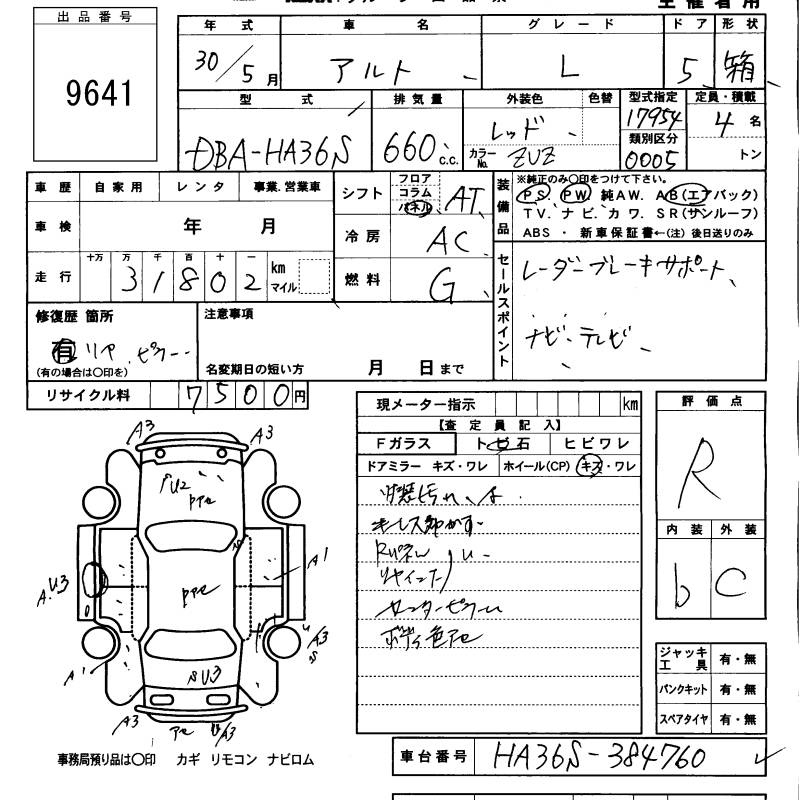 出品番号
9641
年式 車名 グレード ドア 形状
30/5月 アルト L 5 箱
型式 排気量 外装色 色替 型式指定 定員・積載
DBA-HA36S 660 c.c. レッド 17954 4名
カラーNo. ZUZ 類別区分 0005 トン
車歴 自家用 レンタ 事業.営業車
車検 年 月
走行 十万 万 千 百 十 一
3 1 8 0 2 km マイル
シフト フロア コラム パネル AT
冷房 AC
燃料 G
装備品
※純正のみ〇印をつけて下さい。
PS PW 純AW. AB(エアバック)
TV. ナビ. カワ. SR(サンルーフ)
ABS ・ 新車保証書←(注) 後日送りのみ
セールスポイント
レーダーブレーキサポート
ナビ テレビ
修復歴 箇所
有 リヤ ピラー
(有の場合は〇印を)
注意事項
名変期日の短い方 月 日まで
リサイクル料 7500円
現メーター指示 km
【査定員記入】
Fガラス トビ石 ヒビワレ
ドアミラー キズ・ワレ ホイール(CP) キズ・ワレ
内装汚れ
リヤインナー
センターピラー
ボディ色アセ
評価点
R
内装 外装
b C
ジャッキ工具 有・無
パンクキット 有・無
スペアタイヤ 有・無
A3 A3
U2
A1
AU3
A1
A3S
SU3
A3 A3
事務局預り品は〇印 カギ リモコン ナビロム
車台番号 HA36S-384760